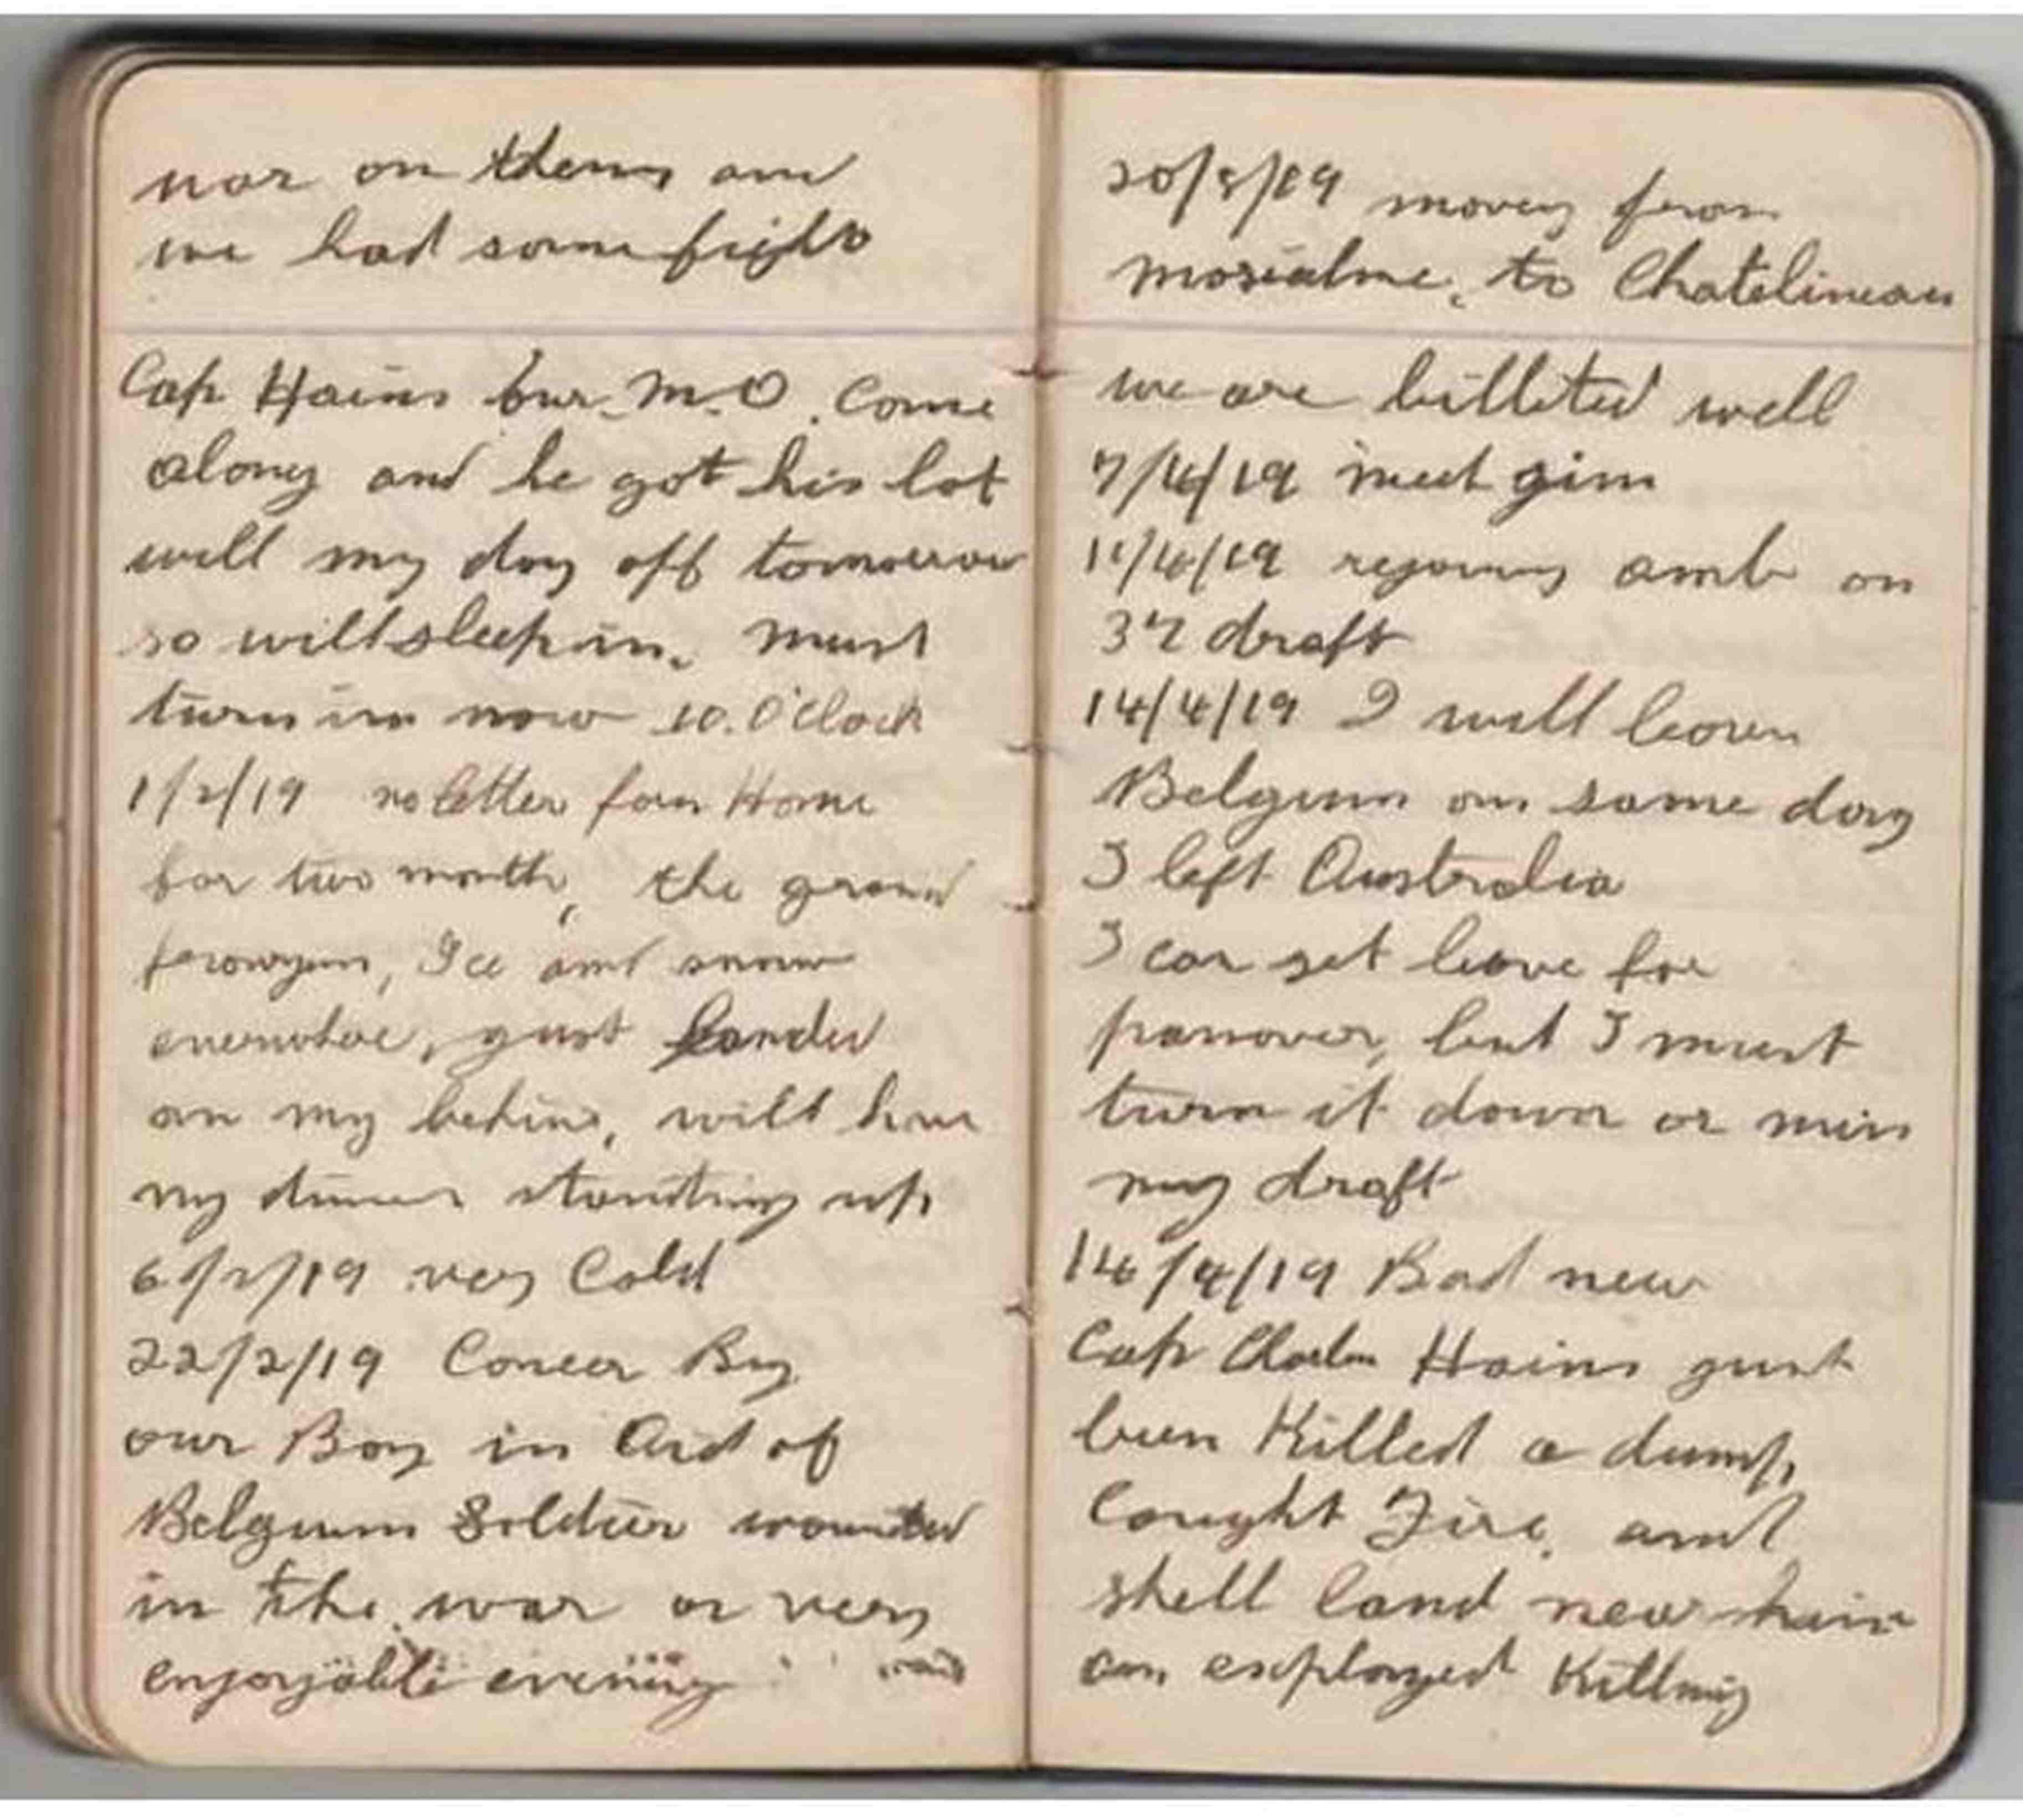 war on them and
we had some fight
Cap Hains our M.O. Come
along and he got his lot
well my day off tomorrow
so will sleep in. must
turn in now 10. O'Clock
1/2/19 no letter from Home
for two month, the ground
Ice and snow
gust landed
on my behind, will have
my dinner standing up
6/2/19 very Cold
22/2/19 By
our Boy in Aid of
Belgium Soldier wounded
in the war a very
enjoyable evening
movey from
to Chatelineau
we are billited well
7/4/19 meet gim
11/4/19 amb on
37 draft
14/4/19 I will leave
Belgium on same day
I left Australia
I can get leave for
but I must
turn it down or miss
my draft
14/4/19 Bad new
Cap Charles Hains gust
been Killed a dump
Caught Fire, and
shell land near
an exployed Killing